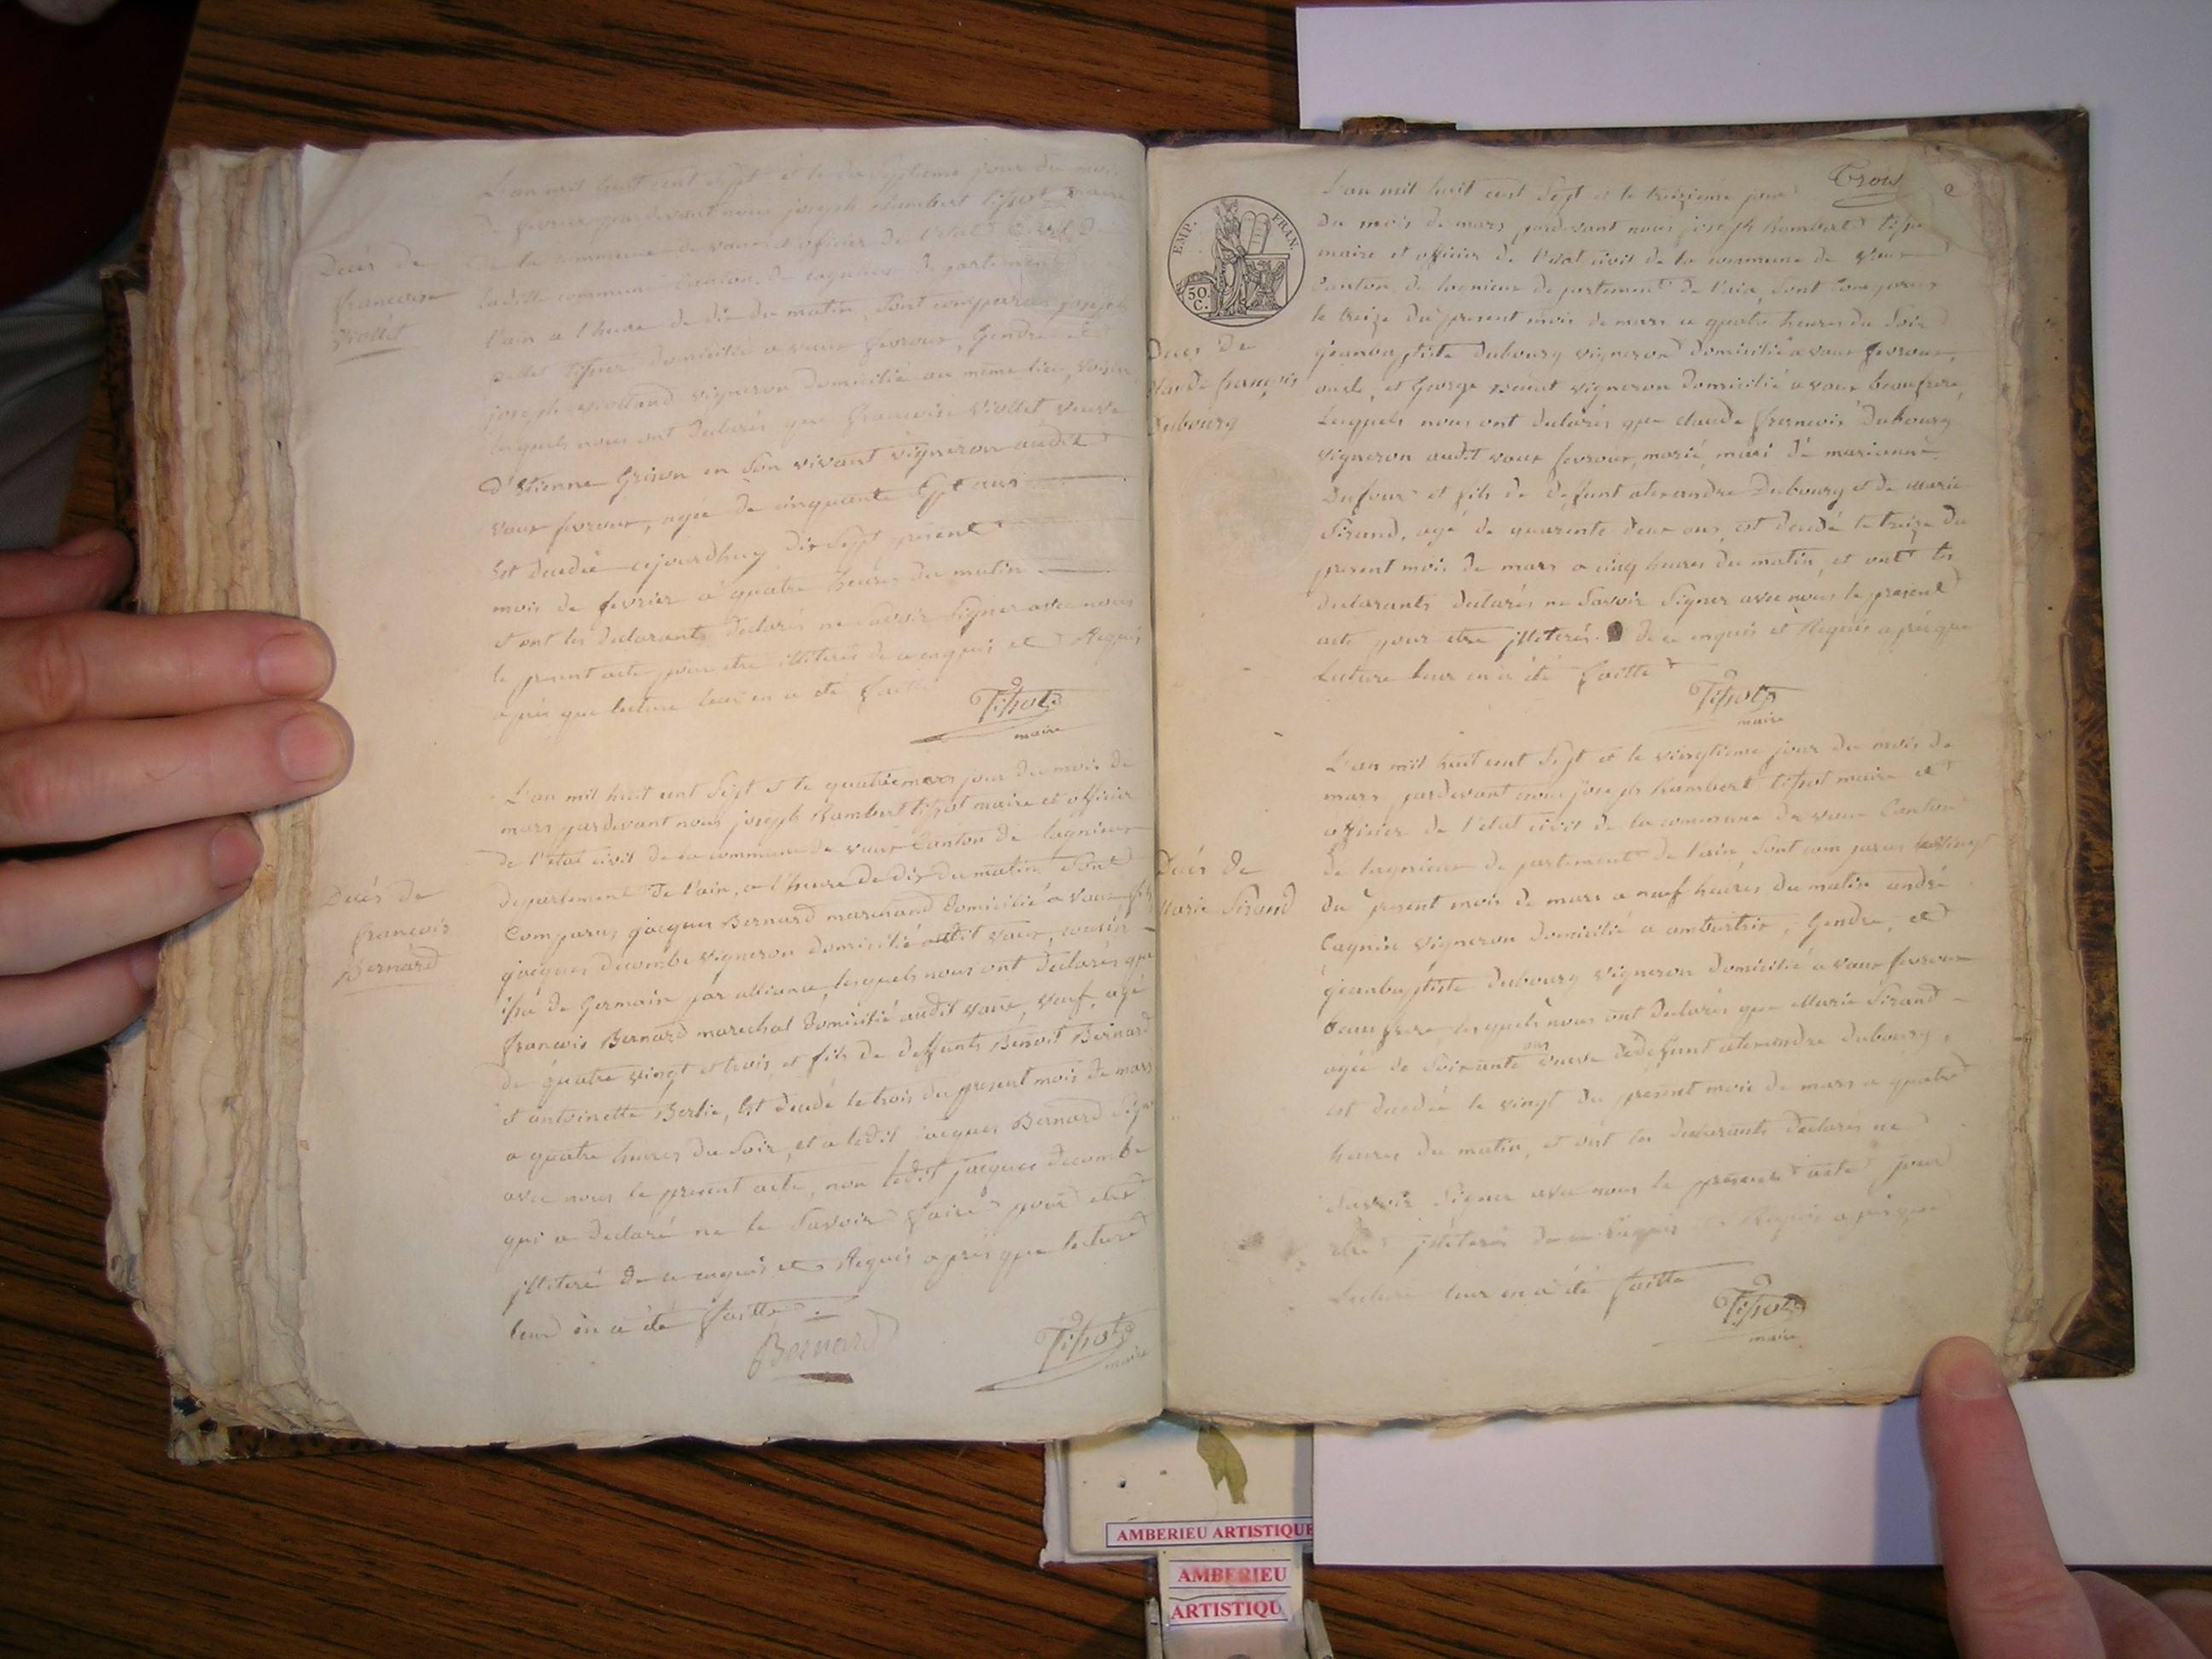 L'an mil huit cent sept et le dix septieme jour du mois
de fevrier pardevant nous joseph Rambert tissot maire
de la commune de vaux et officier de l'etat Civil de
Decés de
francoise
Viollet
ladite commune Canton de lagnieu departement de
l'ain a l'heure de dix du matin, sont comparus joseph
tissier domicilié a vaux fevroux, Gendre et
joseph vigneron domicilié au même lieu, voisin
lesquels nous ont declarés que francoise Viollet veuve
d'Etienne Grison en son vivant vigneron audit
vaux fevroux, agée de cinquante Sept ans
Est decedée aujourdhuy dix Sept présent
mois de fevrier a quatre heures du matin
et ont les declarants declarés ne savoir signer avec nous
le present acte pour etre illiterés de ce enquis et Requis
après que lecture leur en a été faitte
Tissot
maire
L'an mil huit cent Sept et le quatrieme jour du mois de
mars pardevant nous joseph Rambert tissot maire et officier
de l'état civil de la commune de vaux Canton de lagnieux
departement de l'ain, a l'heure de dix du matin Sont
Decés de
francois
Bernard
Comparus jacques Bernard marchand domicilié a vaux, fils
jacques decombe vigneron domicilié audit vaux, cousin
issu de Germain par alliance, lesquels nous ont declarés que
francois Bernard marechal domicilié audit vaux, veuf, agé
de quatre vingt et trois, et fils de deffunts Benoit Bernard
et antoinette Berlie, Est decedé le trois du present mois de mars
a quatre heures du Soir, et a ledit jacques Bernard Signé
avec nous le present acte, non ledit jacques decombe
qui a declaré ne le Savoir faire pour etre
illiteré de ce enquis et Requis après que lecture
leur en a été faitte
Bernard
Tissot
maire
EMP. FRAN.
50.
C.
L'an mil huit cent Sept et le treizieme jour
du mois de mars, pardevant nous joseph Rambert tissot
maire et officier de l'etat civil de la commune de vaux
Canton de lagnieux departement de l'ain, Sont Comparus
le treize du present mois de mars a quatre heures du Soir
Deces de
Claude françois
Dubourg
jeanbaptiste dubourg vigneron domicilié a vaux fevroux,
oncle, et George vigneron domicilié a vaux beaufrere,
Lesquels nous ont declarés que claude francois Dubourg
vigneron audit vaux fevroux, marié, mari de marianne
Dufour et fils de defunt alexandre Dubourg et de Marie
Sirand, agé de quarante deux ans, est decedé le treize du
present mois de mars a cinq heures du matin, et ont les
declarants declarés ne Savoir Signer avec nous le present
acte pour etre illiterés de ce enquis et Requis après que
Lecture leur en a été faitte
Tissot
maire
L'an mil huit cent Sept et le vingtieme jour du mois de
mars pardevant nous joseph Rambert tissot maire et
officier de l'état civil de la commune de vaux Canton
de lagnieux departement de l'ain, Sont comparus le vingt
Decés de
Marie Sirand
du present mois de mars a neuf heures du matin andré
Cagnin vigneron domicilié a ambutrix, Gendre, et
jeanbaptiste dubourg vigneron domicilié a vaux fevroux
beaufrere, lesquels nous ont declarés que Marie Sirand
agée de Soixante ans veuve de defunt alexandre dubourg,
est decedée le vingt du present mois de mars a quatre
heures du matin, et ont les declarants declarés ne
Savoir Signer avec nous le present acte pour
etre illiterés de ce enquis et Requis après que
Lecture leur en a été faitte
Tissot
maire
AMBERIEU ARTISTIQUE
AMBERIEU
ARTISTIQU